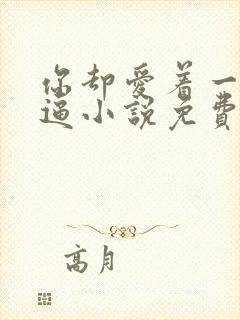 你却爱着一
逼小说免费
高月